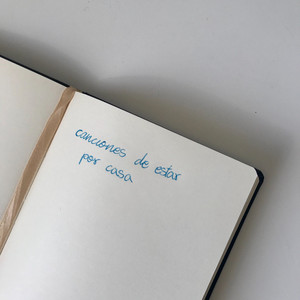 canciones de estar
por casa